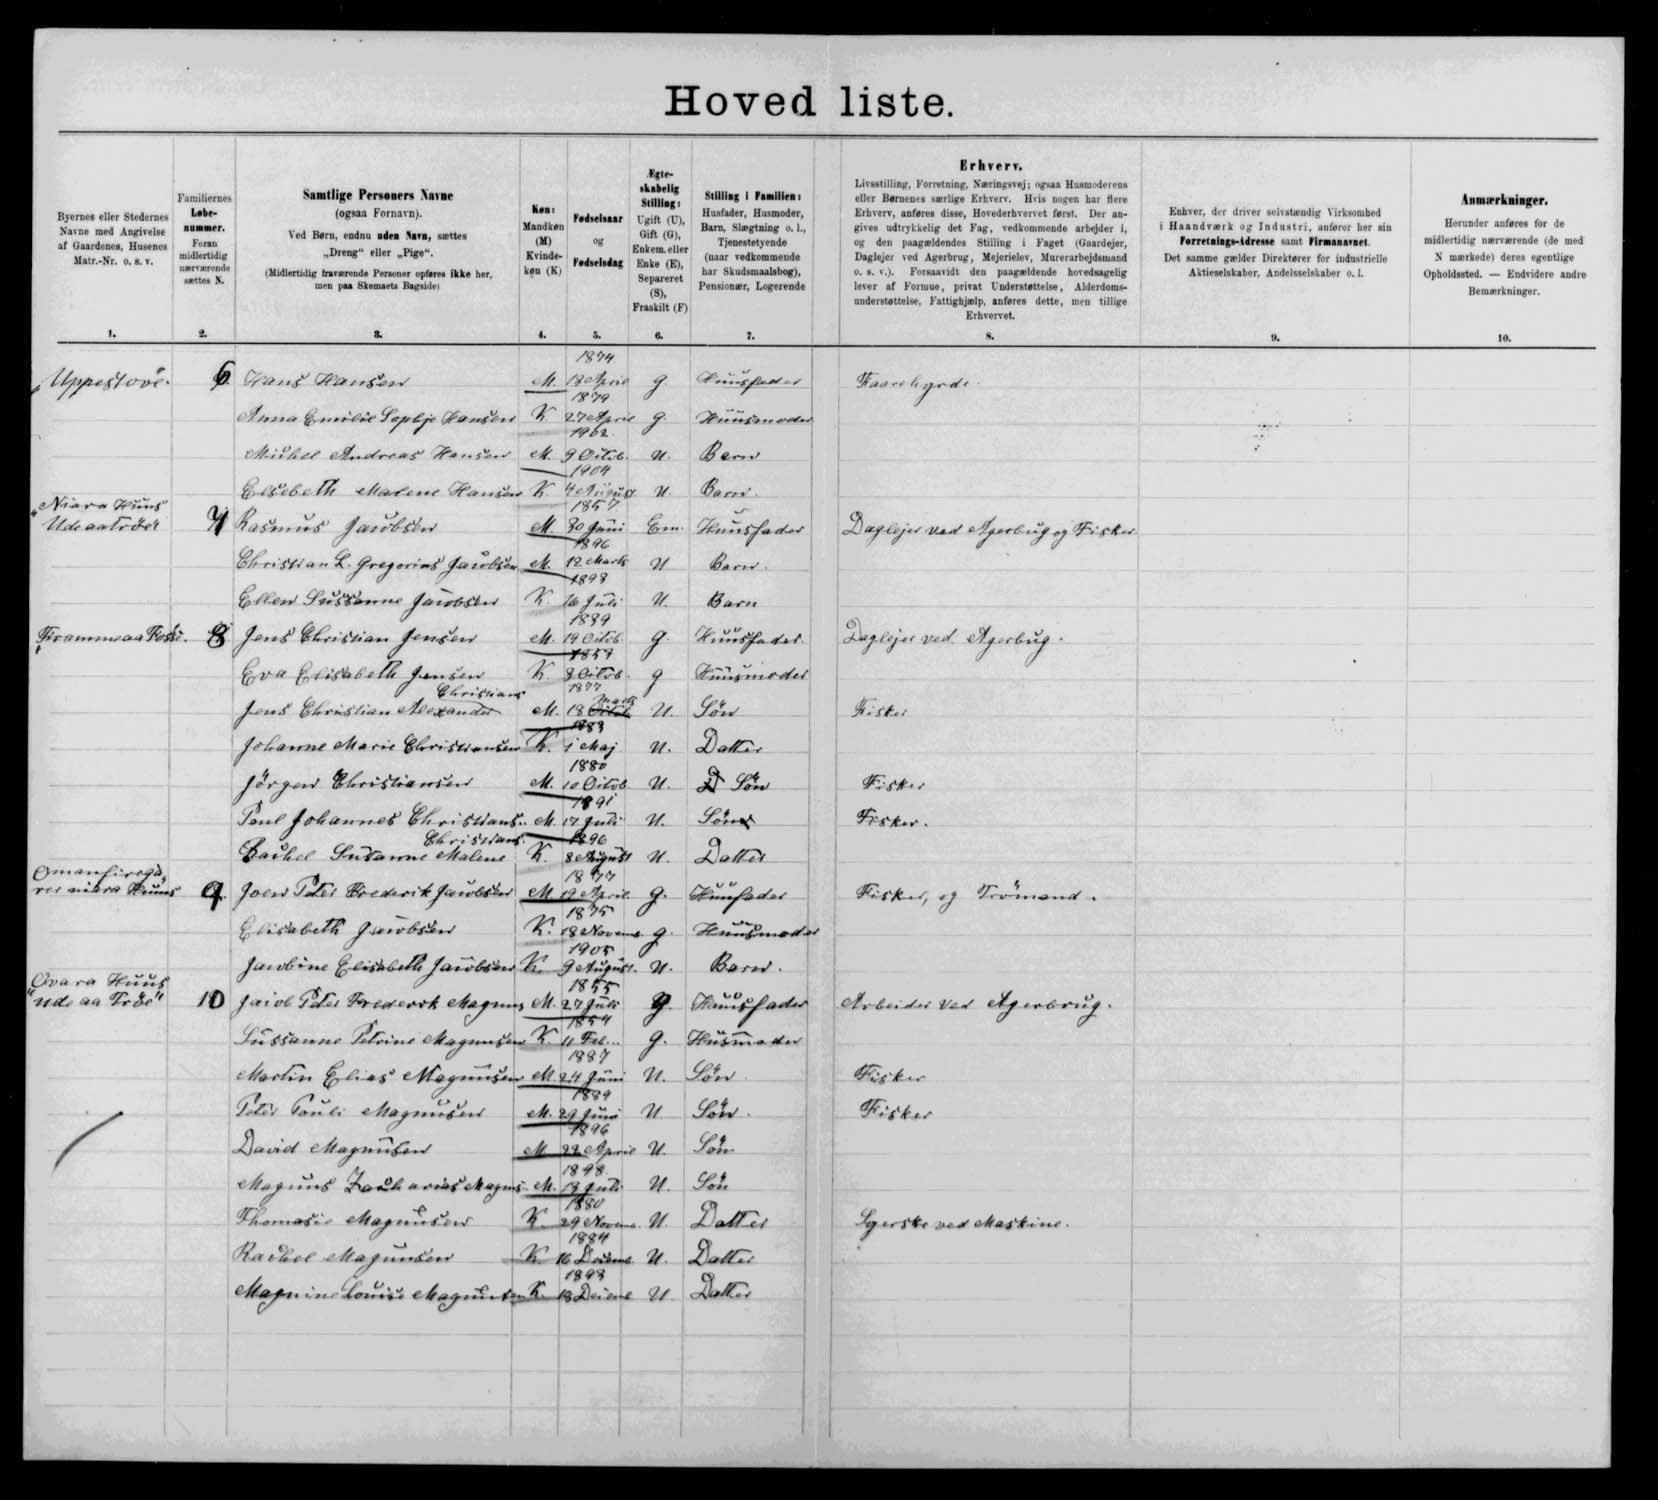 Hoved liste.
Byernes eller Stedernes
Navne med Angivelse
af Gaardenes, Husenes
Matr.-Nr. o. s. v.
1.
Familiernes
Løbe-
nummer.
Foran
midlertidig
nærværende
sættes N.
2.
Samtlige Personers Navne
(ogsaa Fornavn).
Ved Børn, endnu uden Navn, sættes
„Dreng“ eller „Pige“.
(Midlertidig fraværende Personer opføres ikke her,
men paa Skemaets Bagside)
3.
Køn:
Mandkøn
(M)
Kvinde-
køn (K)
4.
Fødselsaar
og
Fødselsdag
5.
Ægte-
skabelig
Stilling:
Ugift (U),
Gift (G),
Enkem. eller
Enke (E),
Separeret
(S),
Fraskilt (F)
6.
Stilling i Familien:
Husfader, Husmoder,
Barn, Slægtning o. l.,
Tjenestetyende
(naar vedkommende
har Skudsmaalsbog),
Pensionær, Logerende
7.
Erhverv.
Livsstilling, Forretning, Næringsvej; ogsaa Husmoderens
eller Børnenes særlige Erhverv. Hvis nogen har flere
Erhverv, anføres disse, Hovederhvervet først. Der an-
gives udtrykkelig det Fag, vedkommende arbejder i,
og den paagældendes Stilling i Faget (Gaardejer,
Daglejer ved Agerbrug, Mejerielev, Murerarbejdsmand
o. s. v.). Forsaavidt den paagældende hovedsagelig
lever af Formue, privat Understøttelse, Alderdoms-
understøttelse, Fattighjælp, anføres dette, men tillige
Erhvervet.
8.
Enhver, der driver selvstændig Virksomhed
i Haandværk og Industri, anfører her sin
Forretnings-Adresse samt Firmanavnet.
Det samme gælder Direktører for industrielle
Aktieselskaber, Andelsselskaber o. l.
9.
Anmærkninger.
Herunder anføres for de
midlertidig nærværende (de med
N mærkede) deres egentlige
Opholdssted. — Endvidere andre
Bemærkninger.
10.
1874
Uppestove. 6 Hans Hansen M. 18 April g. Huusfader Faarehyrde.
1879
Anna Emilie Sophje Hansen K 27 April g. Huusmoder
1902
Michel Andreas Hansen M. 9 Octob. U. Barn
1904
Elsebeth Malene Hansen K. 4 August U. Barn.
Niara Huus 1857
Udeaatröer 7 Rasmus Jacobsen M. 30 Juni Em. Huusfader Daglejer ved Agerbug og Fisker
1896
Christian L. Gregorius Jacobsen M. 12 Marts U Barn.
1898
Ellen Sussanne Jacobsen K. 16 Juli U. Barn
1839
8 Jens Christian Jensen M. 19 Octob. g. Huusfader. Daglejer ved Agerbug.
Eva Elisabeth Jensen K. 8 Octob. g Huusmoder
Christians 1877
Marts
Jens Christian Alexander M. 18 Octob U. Sön Fisker
1883
Johanne Marie Christiansen K. 1 Maj U. Datter
1880
Jörgen Christiansen M. 10 Octob. U. D Sön Fisker
1891
Poul Johannes Christians. M. 17 Juli U. Sön Fisker.
Christians. 1896
Rachel Susanne Malene K. 8 August U. Datter
1877
niara Huus 9. Joen Peter Frederik Jacobsen M. 19 April g. Huufader Fisker, og Trömand.
1875
Elisabeth Jacobsen K. 18 Novemb g. Huusmoder
1905
Jacobine Elisabeth Jacobsen K. 9 August. U. Barn.
Ovara Huus 1855
"ude aa Tröe" 10 Jacob Peter Frederik Magnus M. 27 Juli g. Huusfader Arbeider ved Agerbrug.
1854
Sussanne Petrine Magnusen K. 11 Feb... g. Husmoder
1887
Martin Elias Magnusen M. 24 Juni U. Sön Fisker
1889
Peter Pouli Magnusen M. 29 Juni U Sön. Fisker
1896
David Magnusen M 22 April U. Sön
1898.
Magnus Zacharias Magnus. M. 13 Juli U. Sön
1880
Thomasie Magnusen K. 29 Novem. U. Datter Syerske ved Maskine.
1884
Rachel Magnusen K 16 Decemb. U. Datter
1893
Magnine Louise Magnusen K. 18 Decemb U Datter